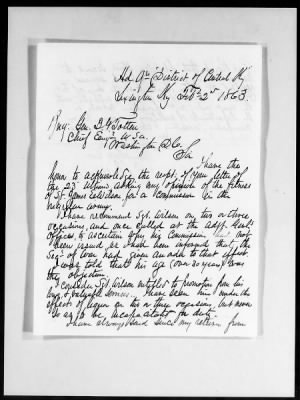 Hd Qrs District of Central Ky
Lexington Ky Feb 2d 1863.
Brig. Gen. J. G. Totten
Chief Engr U. S. A.
Washington D.C.
Sir
I have the
honor to acknowledge the rcpt. of your letter of
the 23d Ultimo, asking my opinion of the fitness
of Sgt. James Wilson, for a Commission in the
regular army.
I have recommend Sgt. Wilson on two or three
occasions, and once called at the Adjt. Genl's
office to ascertain why his Commission had not
been issued, as I had been informed that the
Secy of War had given an order to that effect.
I was told that his age (over 30 years) was
the objection.
I consider Sgt. Wilson entitled to promotion from his
long & valuable services. I have seen him under the
effect of liquor on two or three occasions, but never
so as to be incapacitated for duty.
I have always heard since my return from